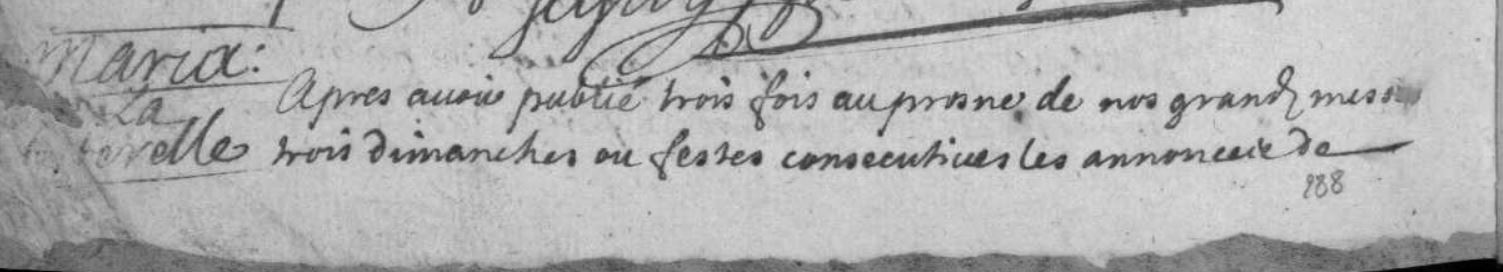 Maria:
La
Apres auoir publié trois fois au prosne de nos grand messes
trois dimanches ou festes consecutiues les annonces de
288